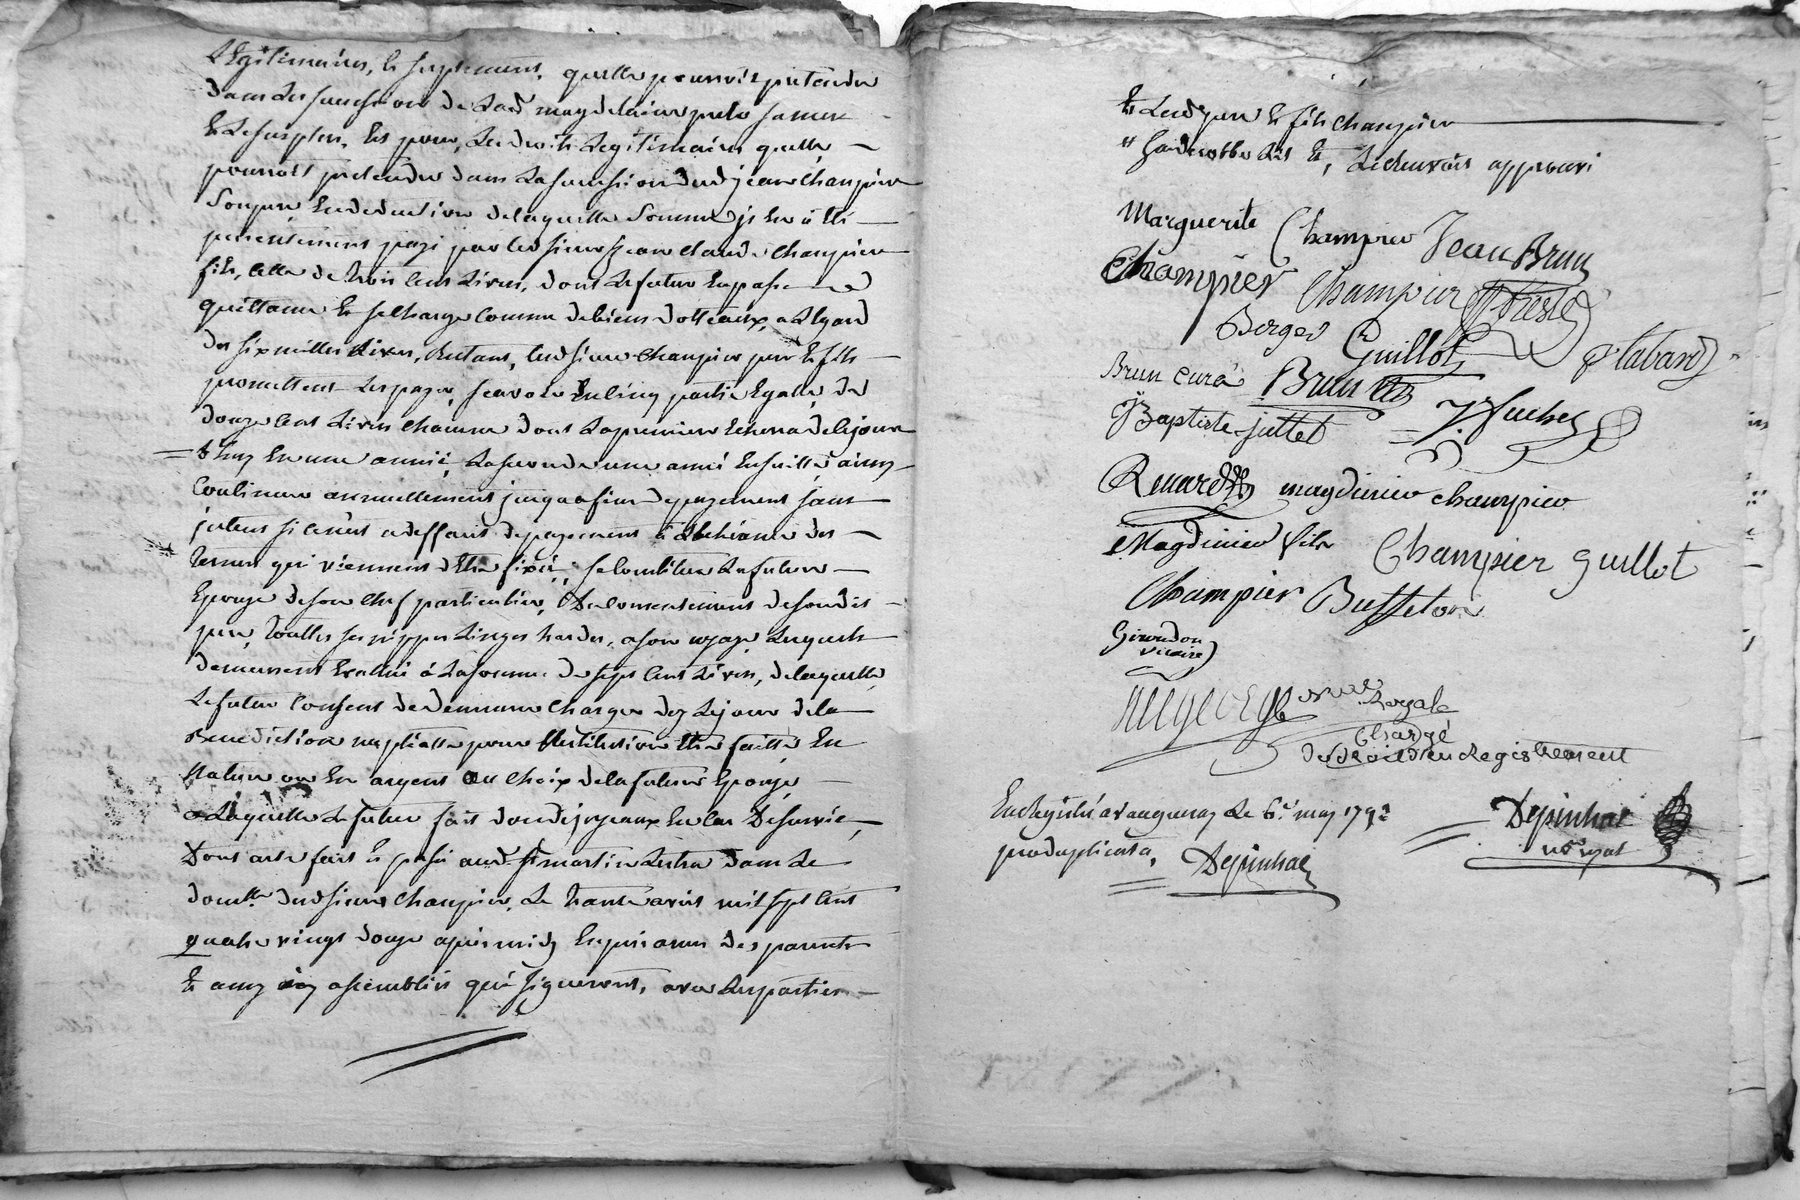 Legitimaires, et suplement, quelle pourroit pretendre
dans les successions de lad. magdelaine prele sa mere
et pour, les droits Legitimaires quelle
pourroit pretendre dans la succession dud jean Champier
Son pere, en deduction de laquelle Somme il en a été
presentement payé par led sieur jean Claude Champier
fils, celle de trois Cent Livres, dont le futur en passe
quittance et se charge comme de biens dotteaux, a Legard
des six milles Livres, restant, lesd sieurs Champier pere et fils
promettent les payer, scavoir en cinq parties Egalles de
douze Cent Livres chacune dont la premiere echerra de ce jour
d'huy en une année, la seconde une année ensuitte ainsy
Continuer annuellement jusqua fin de payement sans
interets si ce n'est a deffaut de payement a Lechéance des
termes qui viennent d'Etre fixés, se Constitue la future
Epouse de son Chef particulier, du consentement de son dit
pere, touttes ses nippes Linges hardes, a son usage, Lesquels
demeurent Evalués à la somme de sept Cent Livres, de laquelle
Le futur Consent de demeurer Chargé dez Le jour de la
Benediction nuptialle pour Restitution Etre faitte En
Nature ou En argent au Choix de la future Epouse
a Laquelle Le futur fait don de joyeaux En Cas De survie,
Dont acte fait et passé aud St martin Lestra dans Le
domlle dud sieur Champier, Le trente avril mil sept Cent
quatre vingt douze après midy En presence des parents
et amis assemblés qui signeront, avec Les parties
et Lesd pere et fils Champier
Marguerite Champier Jean Brun
Champier Champier
Berger Guillot
Brun curé Brun
JBaptiste juttet
Renard magdinier champier
Magdinier fils Champier Guillot
Champier Buffeton
Girondon
vicaire
Royale
Chargé
du Droit d'enregistrement
Enregistré a vaugneray Le 6e. may 1792
pro duplicata, Depinhac
Depinhac
nore royal